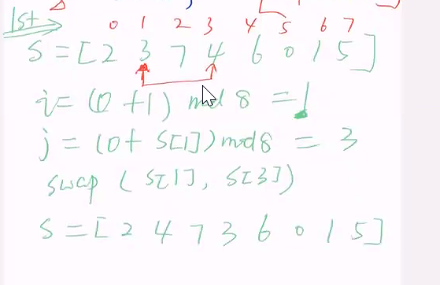 1st 0 1 2 3 4 5 6 7
S = [ 2 3 7 4 6 0 1 5 ]
i = (0 + 1) mod 8 = 1
j = (0 + S[1]) mod 8 = 3
swap ( S[1], S[3] )
S = [ 2 4 7 3 6 0 1 5 ]